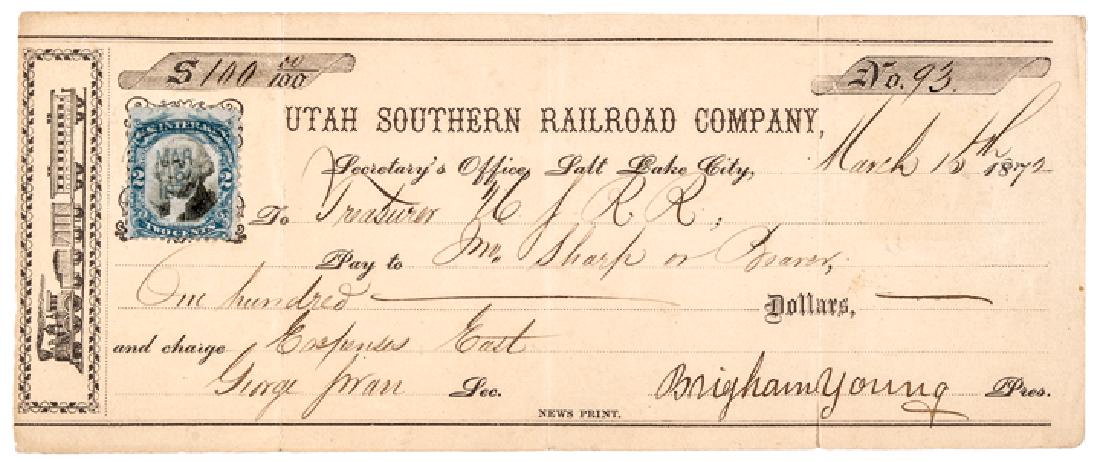 $ 100 00/100
No. 93.
UTAH SOUTHERN RAILROAD COMPANY,
Secretary's Office, Salt Lake City, March 15th 1872
U.S. INTER. REV.
MAR
TWO CENTS
To Treasurer U S R R,
Pay to Jno. Sharp or Bearer,
One hundred Dollars,
and charge Expenses East
George Swan Sec. Brigham Young Pres.
NEWS PRINT.